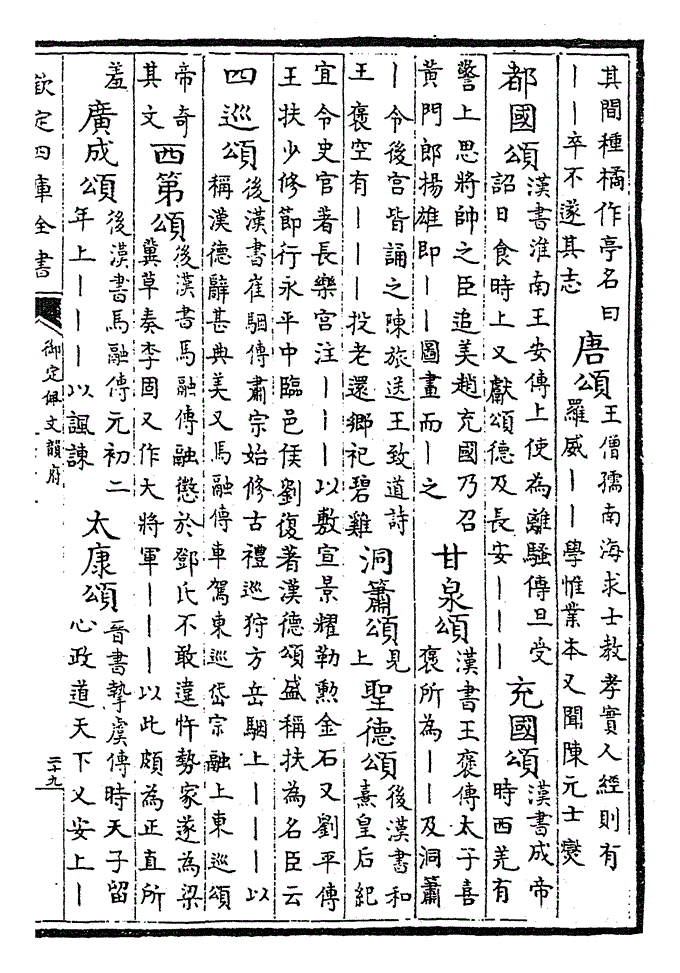 其間種橘作亭名曰
——卒不遂其志
唐頌
王僧孺南海求士教孝實人經則有
羅威——學惟業本又聞陳元士燮
都國頌
漢書淮南王安傳上使為離騷傳旦受
詔日食時上又獻頌德及長安———
充國頌
漢書成帝
時西羌有
警上思將帥之臣追美趙充國乃召
黄門郎揚雄即——圖畫而—之
甘泉頌
漢書王褒傳太子喜
褒所為——及洞簫
—令後宫皆誦之陳旅送王致道詩
王褒空有———投老還鄉祀碧雞
洞簫頌
見
上
聖德頌
後漢書和
熹皇后紀
宜令史官著長樂宫注———以敷宣景耀勒勲金石又劉平傳
王扶少修節行永平中臨邑侯劉復著漢德頌盛稱扶為名臣云
四巡頌
後漢書崔駰傳肅宗始修古禮巡狩方岳駰上————以
稱漢德辭甚典美又馬融傳車駕東巡岱宗融上東巡頌
帝奇
其文
西第頌
後漢書馬融傳融懲於鄧氏不敢違忤勢家遂為梁
冀草奏李固又作大將軍———以此頗為正直所
羞
廣成頌
後漢書馬融傳元初二
年上———以諷諫
太康頌
晉書摯虞傳時天子留
心政道天下乂安上—
欽定四庫全書
御定佩文韻府